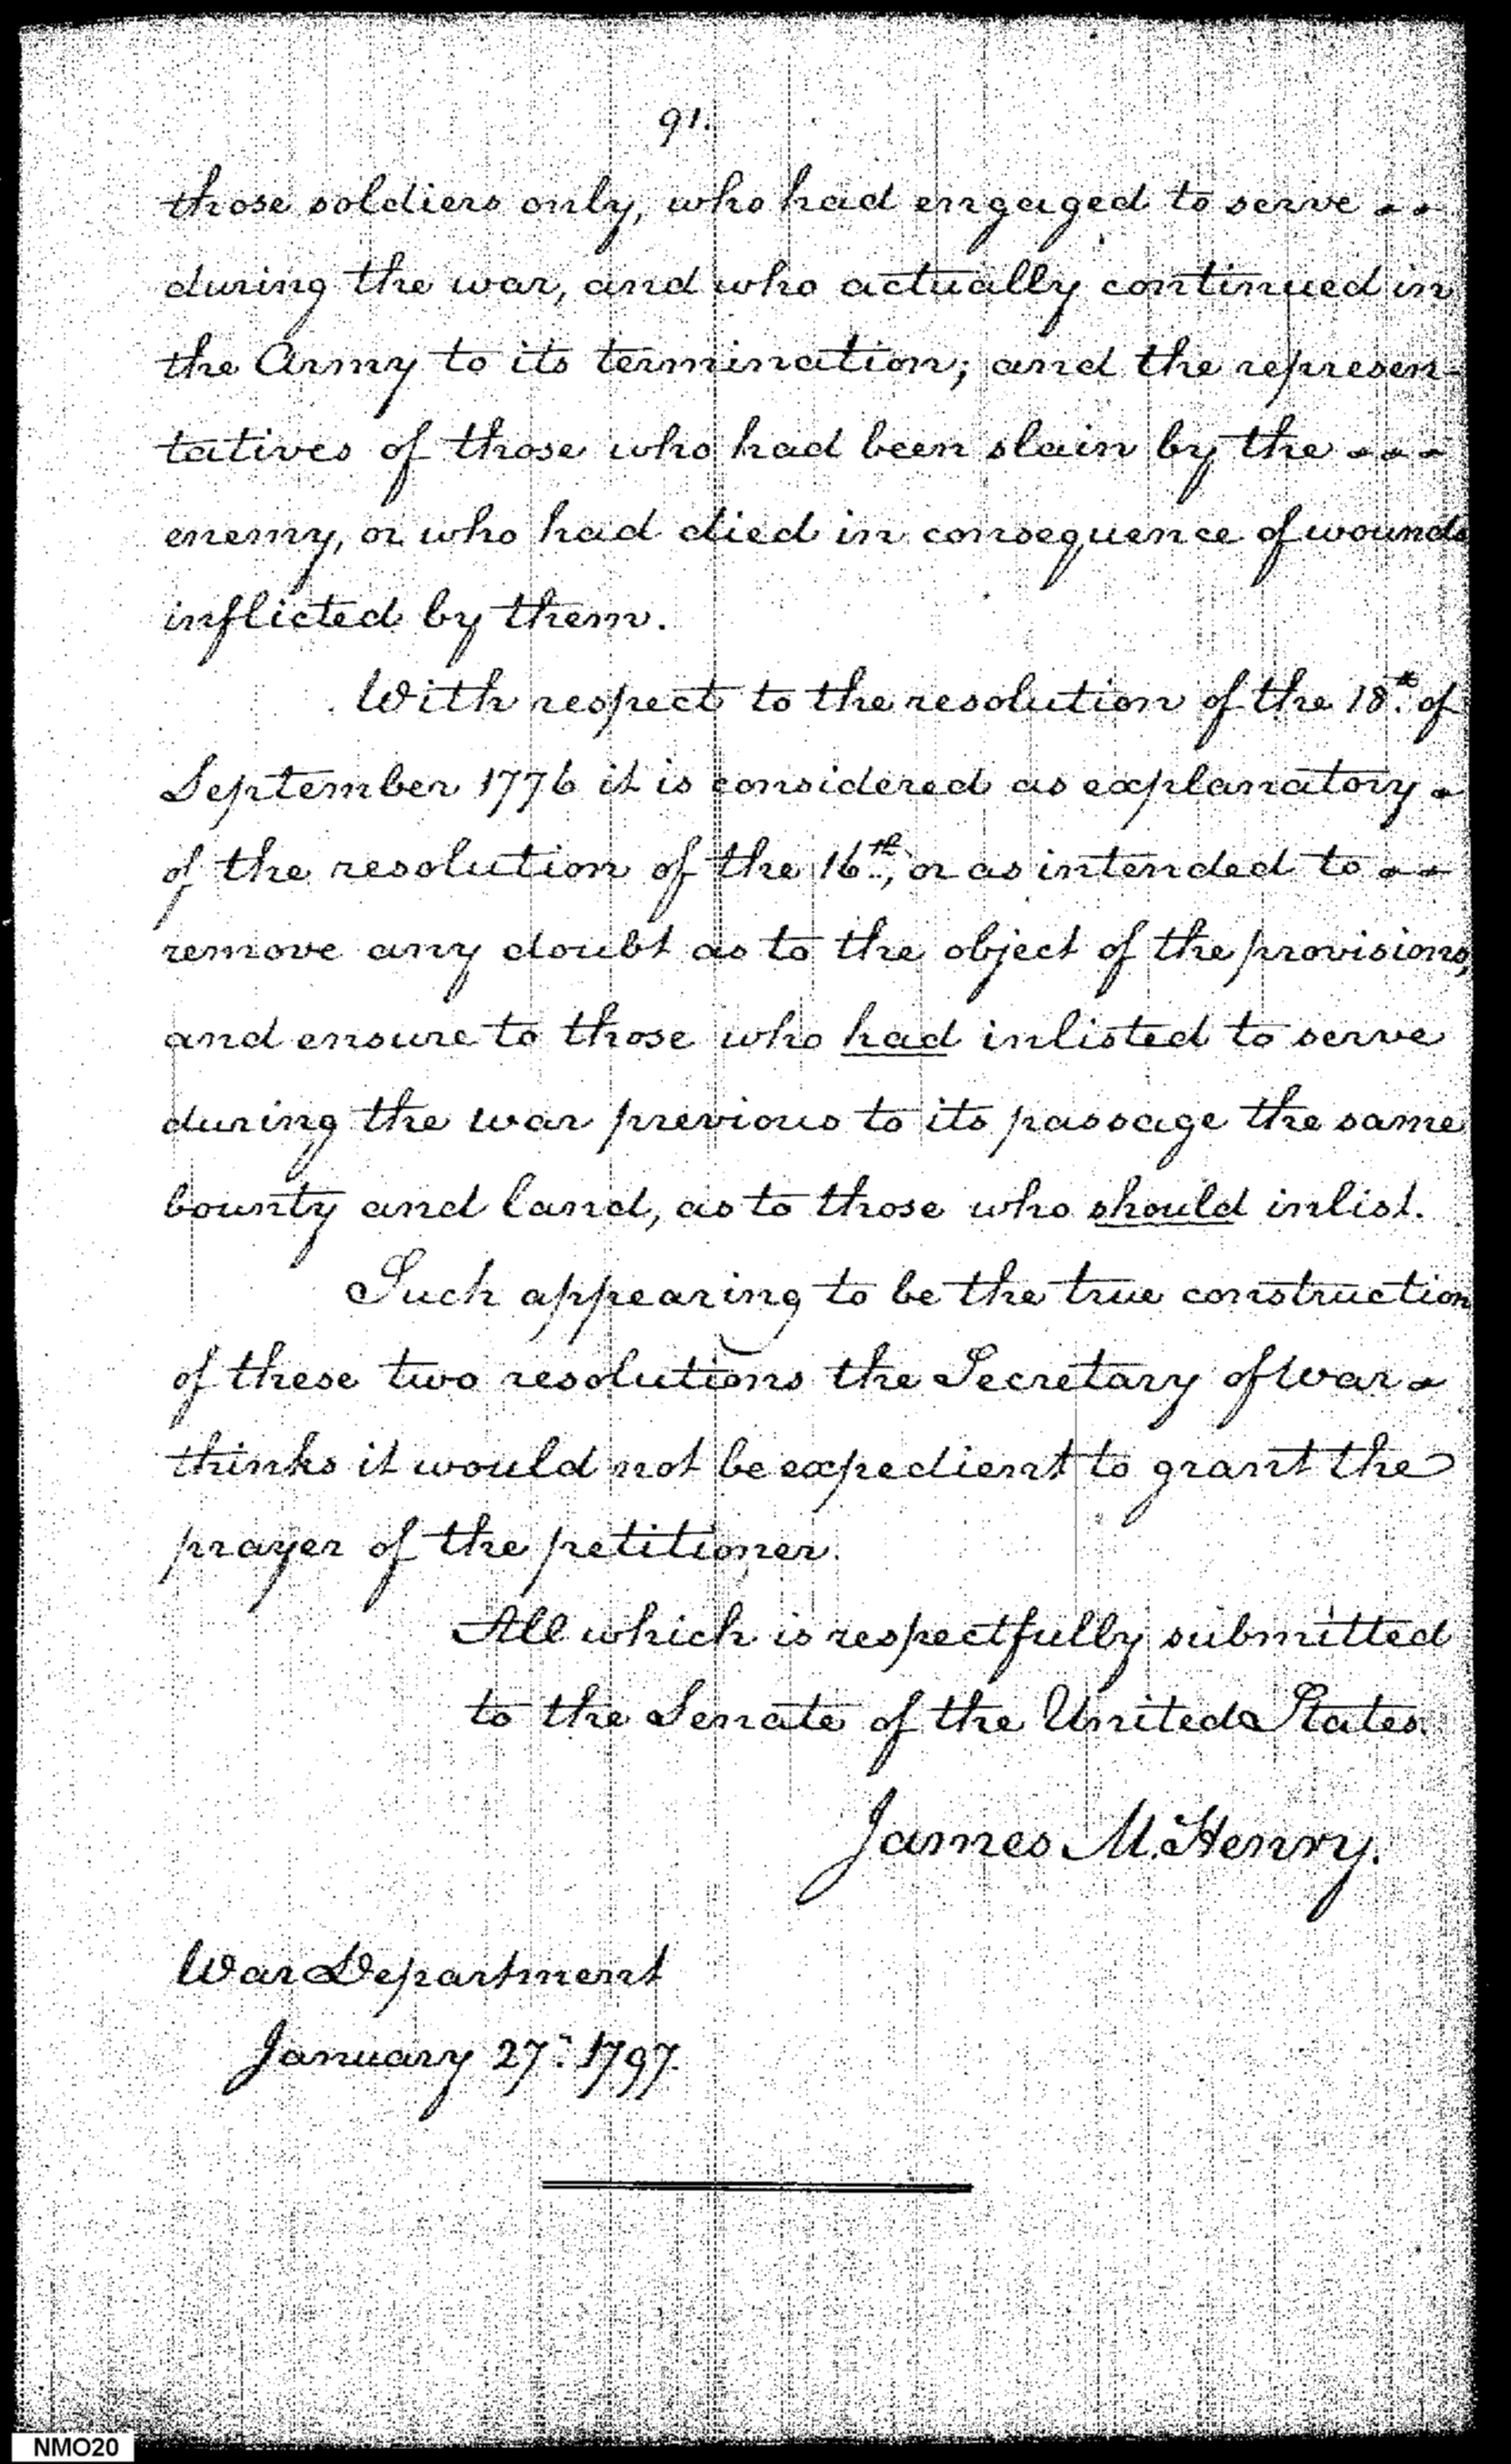 91.
those soldiers only, who had engaged to serve
during the war, and who actually continued in
the Army to its termination; and the represen-
tatives of those who had been slain by the
enemy, or who had died in consequence of wounds
inflicted by them.
With respect to the resolution of the 18th. of
September 1776 it is considered as explanatory
of the resolution of the 16th., or as intended to
remove any doubt as to the object of the provisions,
and ensure to those who had inlisted to serve
during the war previous to its passage the same
bounty and land, as to those who should inlist.
Such appearing to be the true construction
of these two resolutions the Secretary of War
thinks it would not be expedient to grant the
prayer of the petitioner.
All which is respectfully submitted
to the Senate of the United States.
James M.Henry.
War Department
January 27. 1797.
NMO20